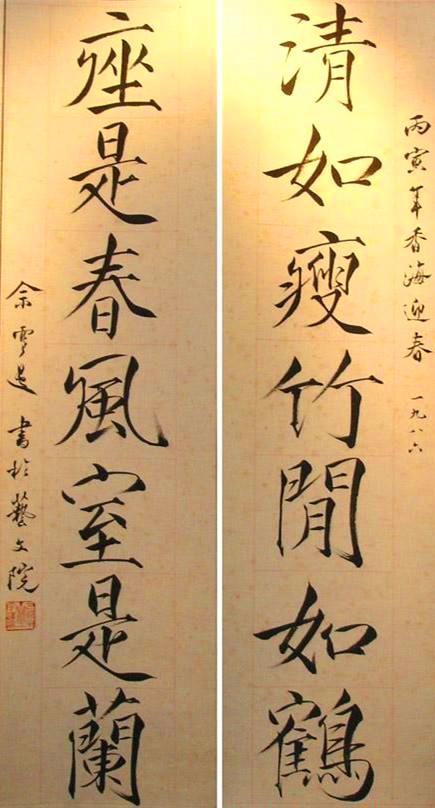 丙寅年香海迎春 一九八六
清如瘦竹閒如鶴
座是春風室是蘭
佘雪曼 書於藝文院